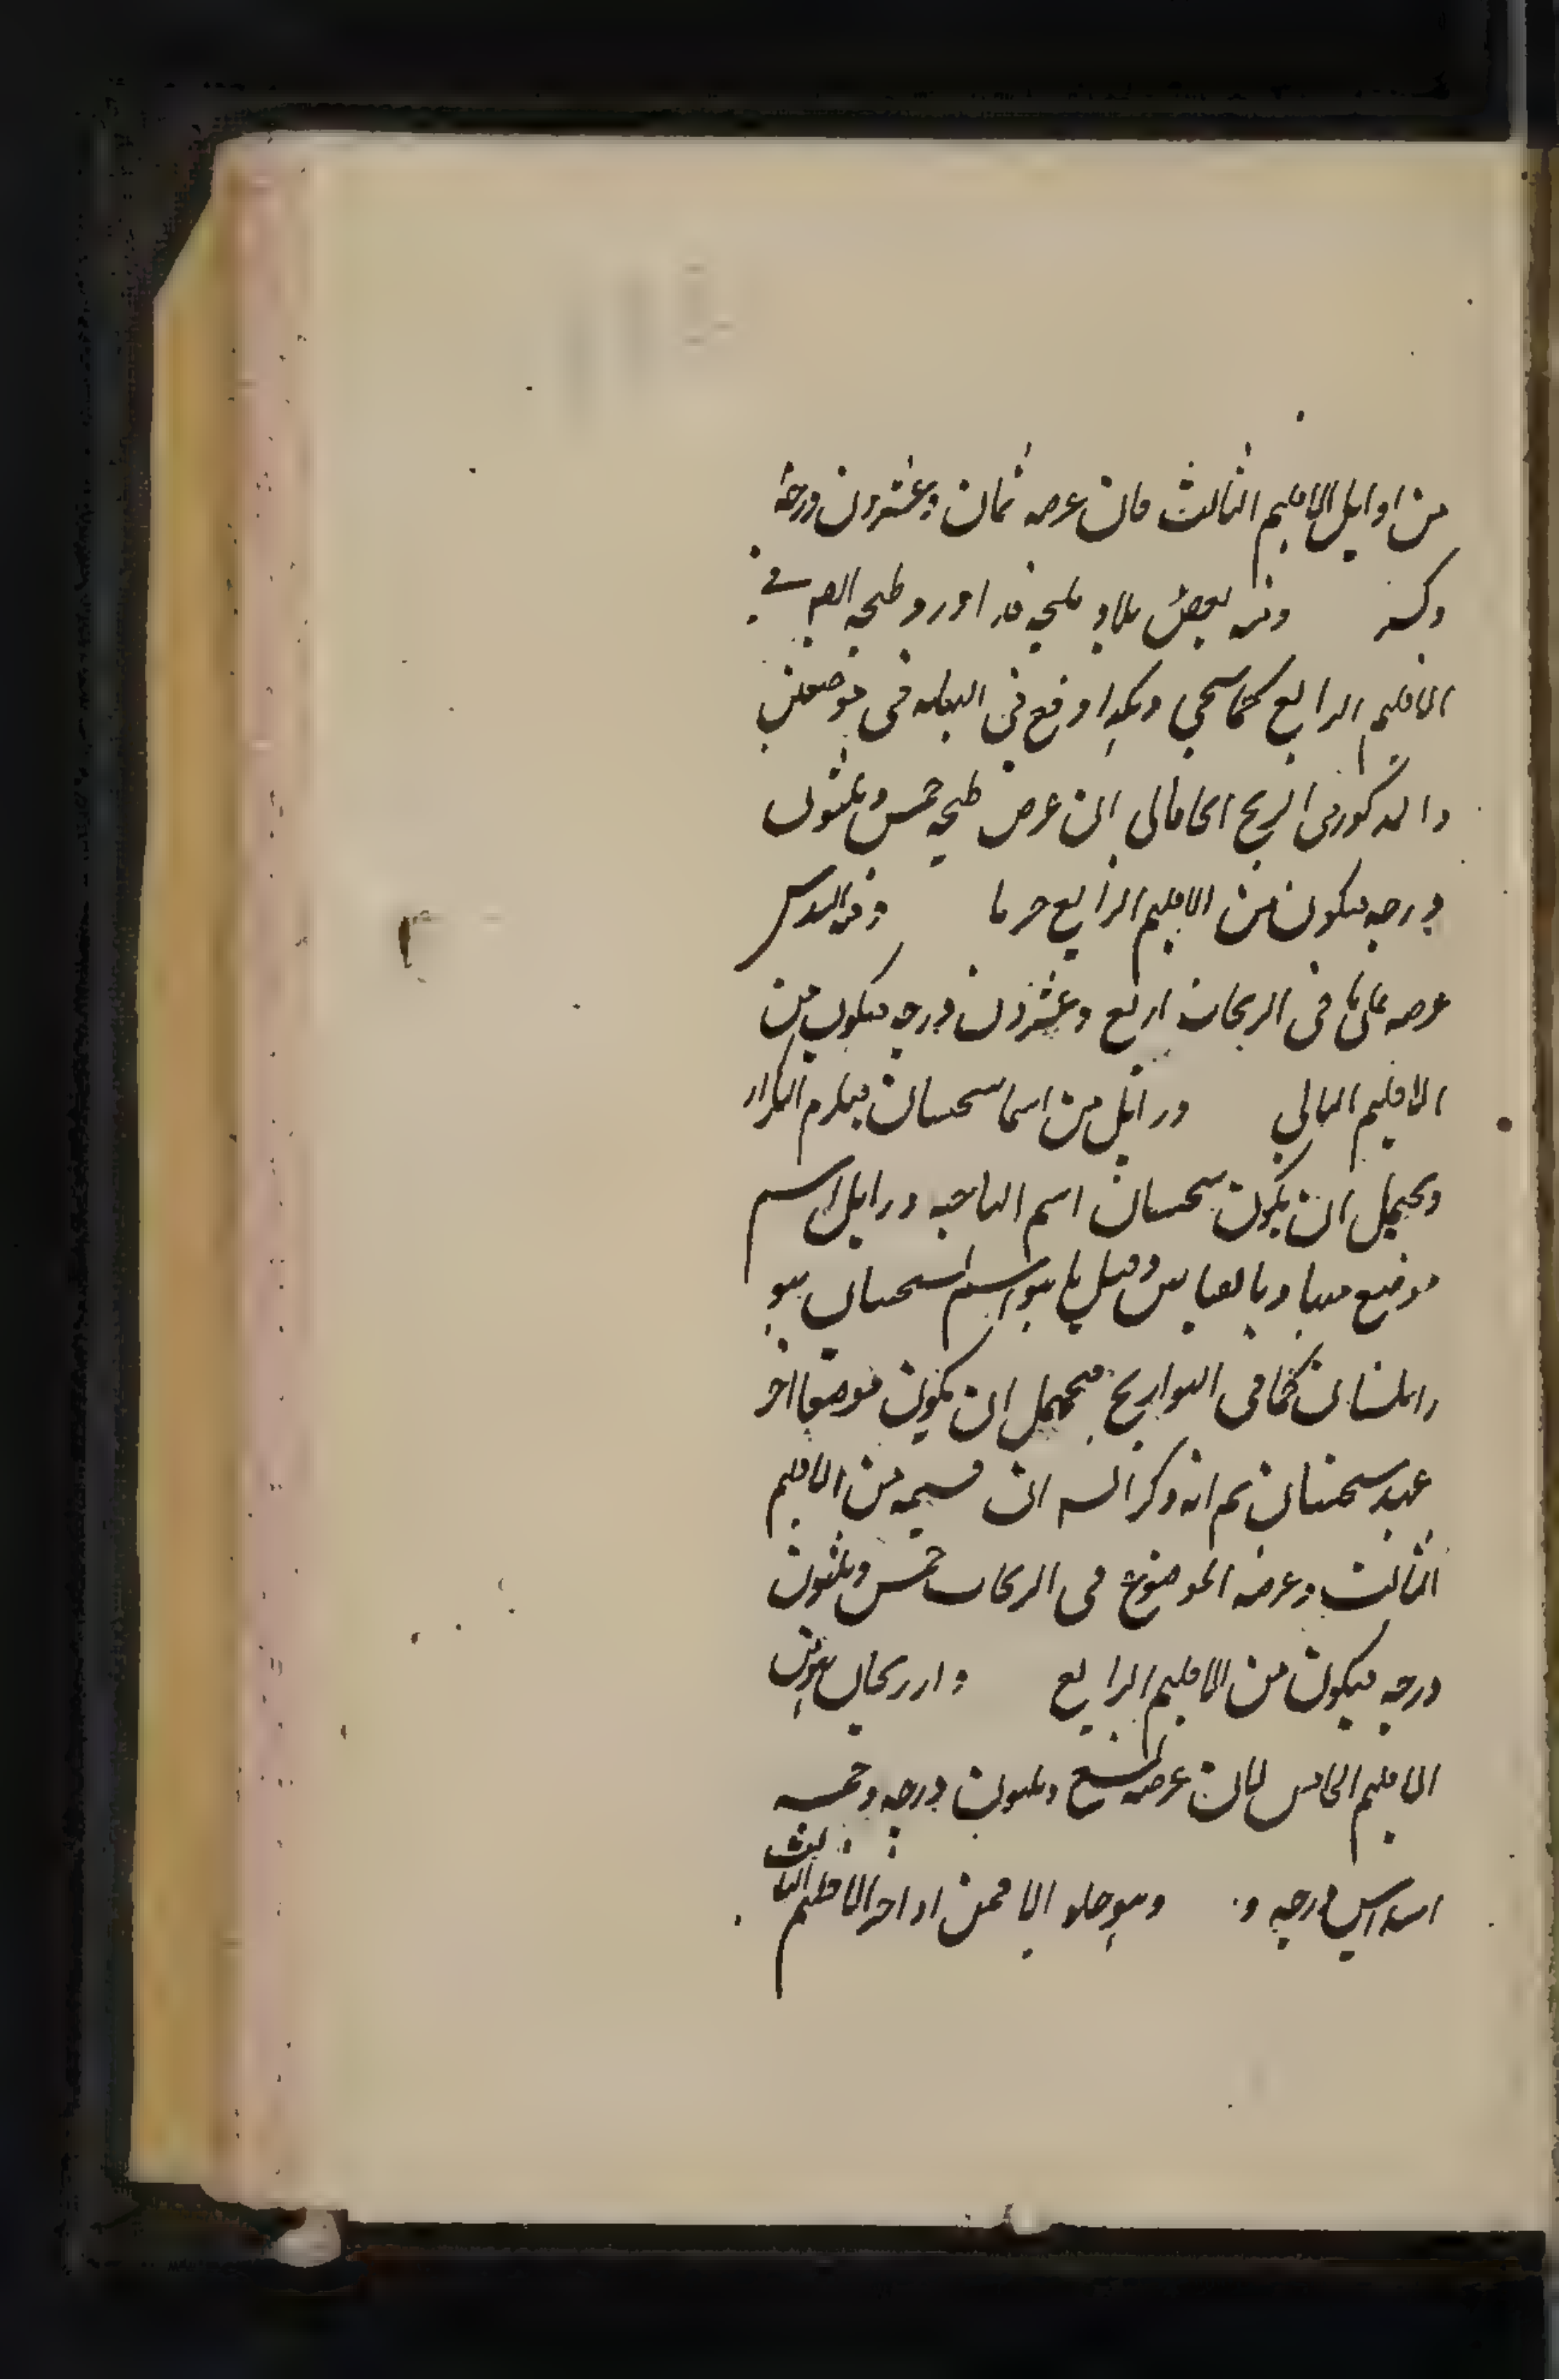 من اوايل الاقليم الثالث فان عرضه ثمان وعشرون درجة
وكسر ومنه بعض بلاد طنجه قد اورد طنجه ايضا في
الاقليم الرابع كما سيجي وهكذا وقع في النهايه في موضعين
والمذكور في الزيج الخاقاني ان عرض طنجه خمس وثلثون
درجه فيكون من الاقليم الرابع جزما
عرضه على ما في الزيجات اربع وعشرون درجه فيكون من
الاقليم الثاني وزابل من اسما سجستان فيلزم التكرار
ويحتمل ان يكون سجستان اسم الناحيه وزابل اسم
موضع منها وبالعكس وقيل ما هو اسم لسجستان هو
زابلستان كما في التواريخ فيحتمل ان يكون موضعا اخر
عند سجستان ثم انه ذكر انه ان قسيمه من الاقليم
الثالث وعرضه الموضوع في الزيجات خمس وثلثون
درجه فيكون من الاقليم الرابع واذربيجان هو من
الاقليم الخامس لان عرضه تسع وثلثون درجه وخمسه
اسداس درجه و. وهو جعلها من اواخر الاقليم الثالث